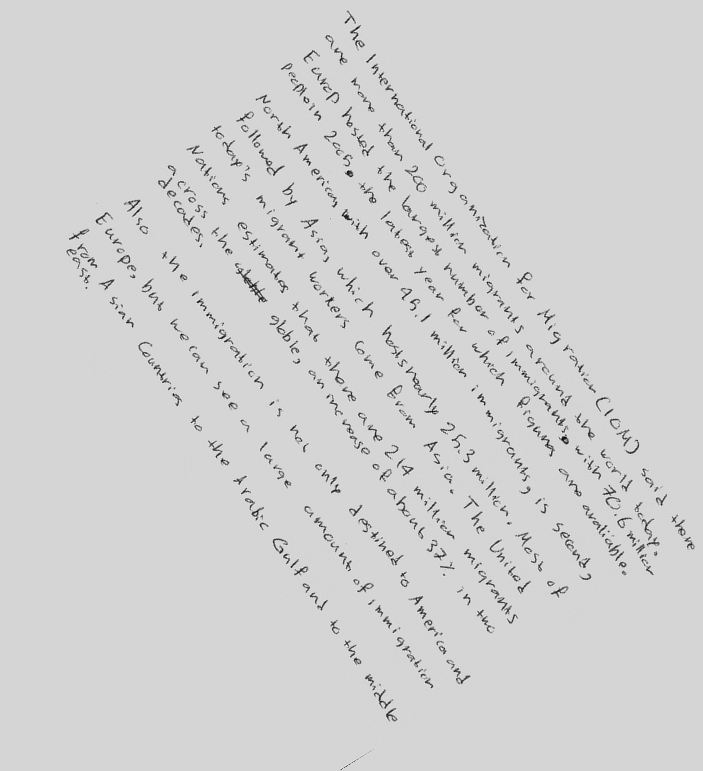 The International Organization for Migration (IOM) said there
are more than 200 million migrants around the world today.
Europ hosted the largest number of immigrants, with 70.6 million
people in 2005, the latest year for which figures are avaliable.
North American, with over 45.1 million immigrants, is second,
followed by Asia, which hosts nearly 25.3 million. Most of
today's migrant workers come from Asia. The United
Nations estimates that there are 214 million migrants
across the globle, an increase of about 37% in two
decades.
Also the immigration is not only destined to America and
Europe, but we can see a large amount of immigration
from Asian Countries to the Arabic Gulf and to the middle
east.